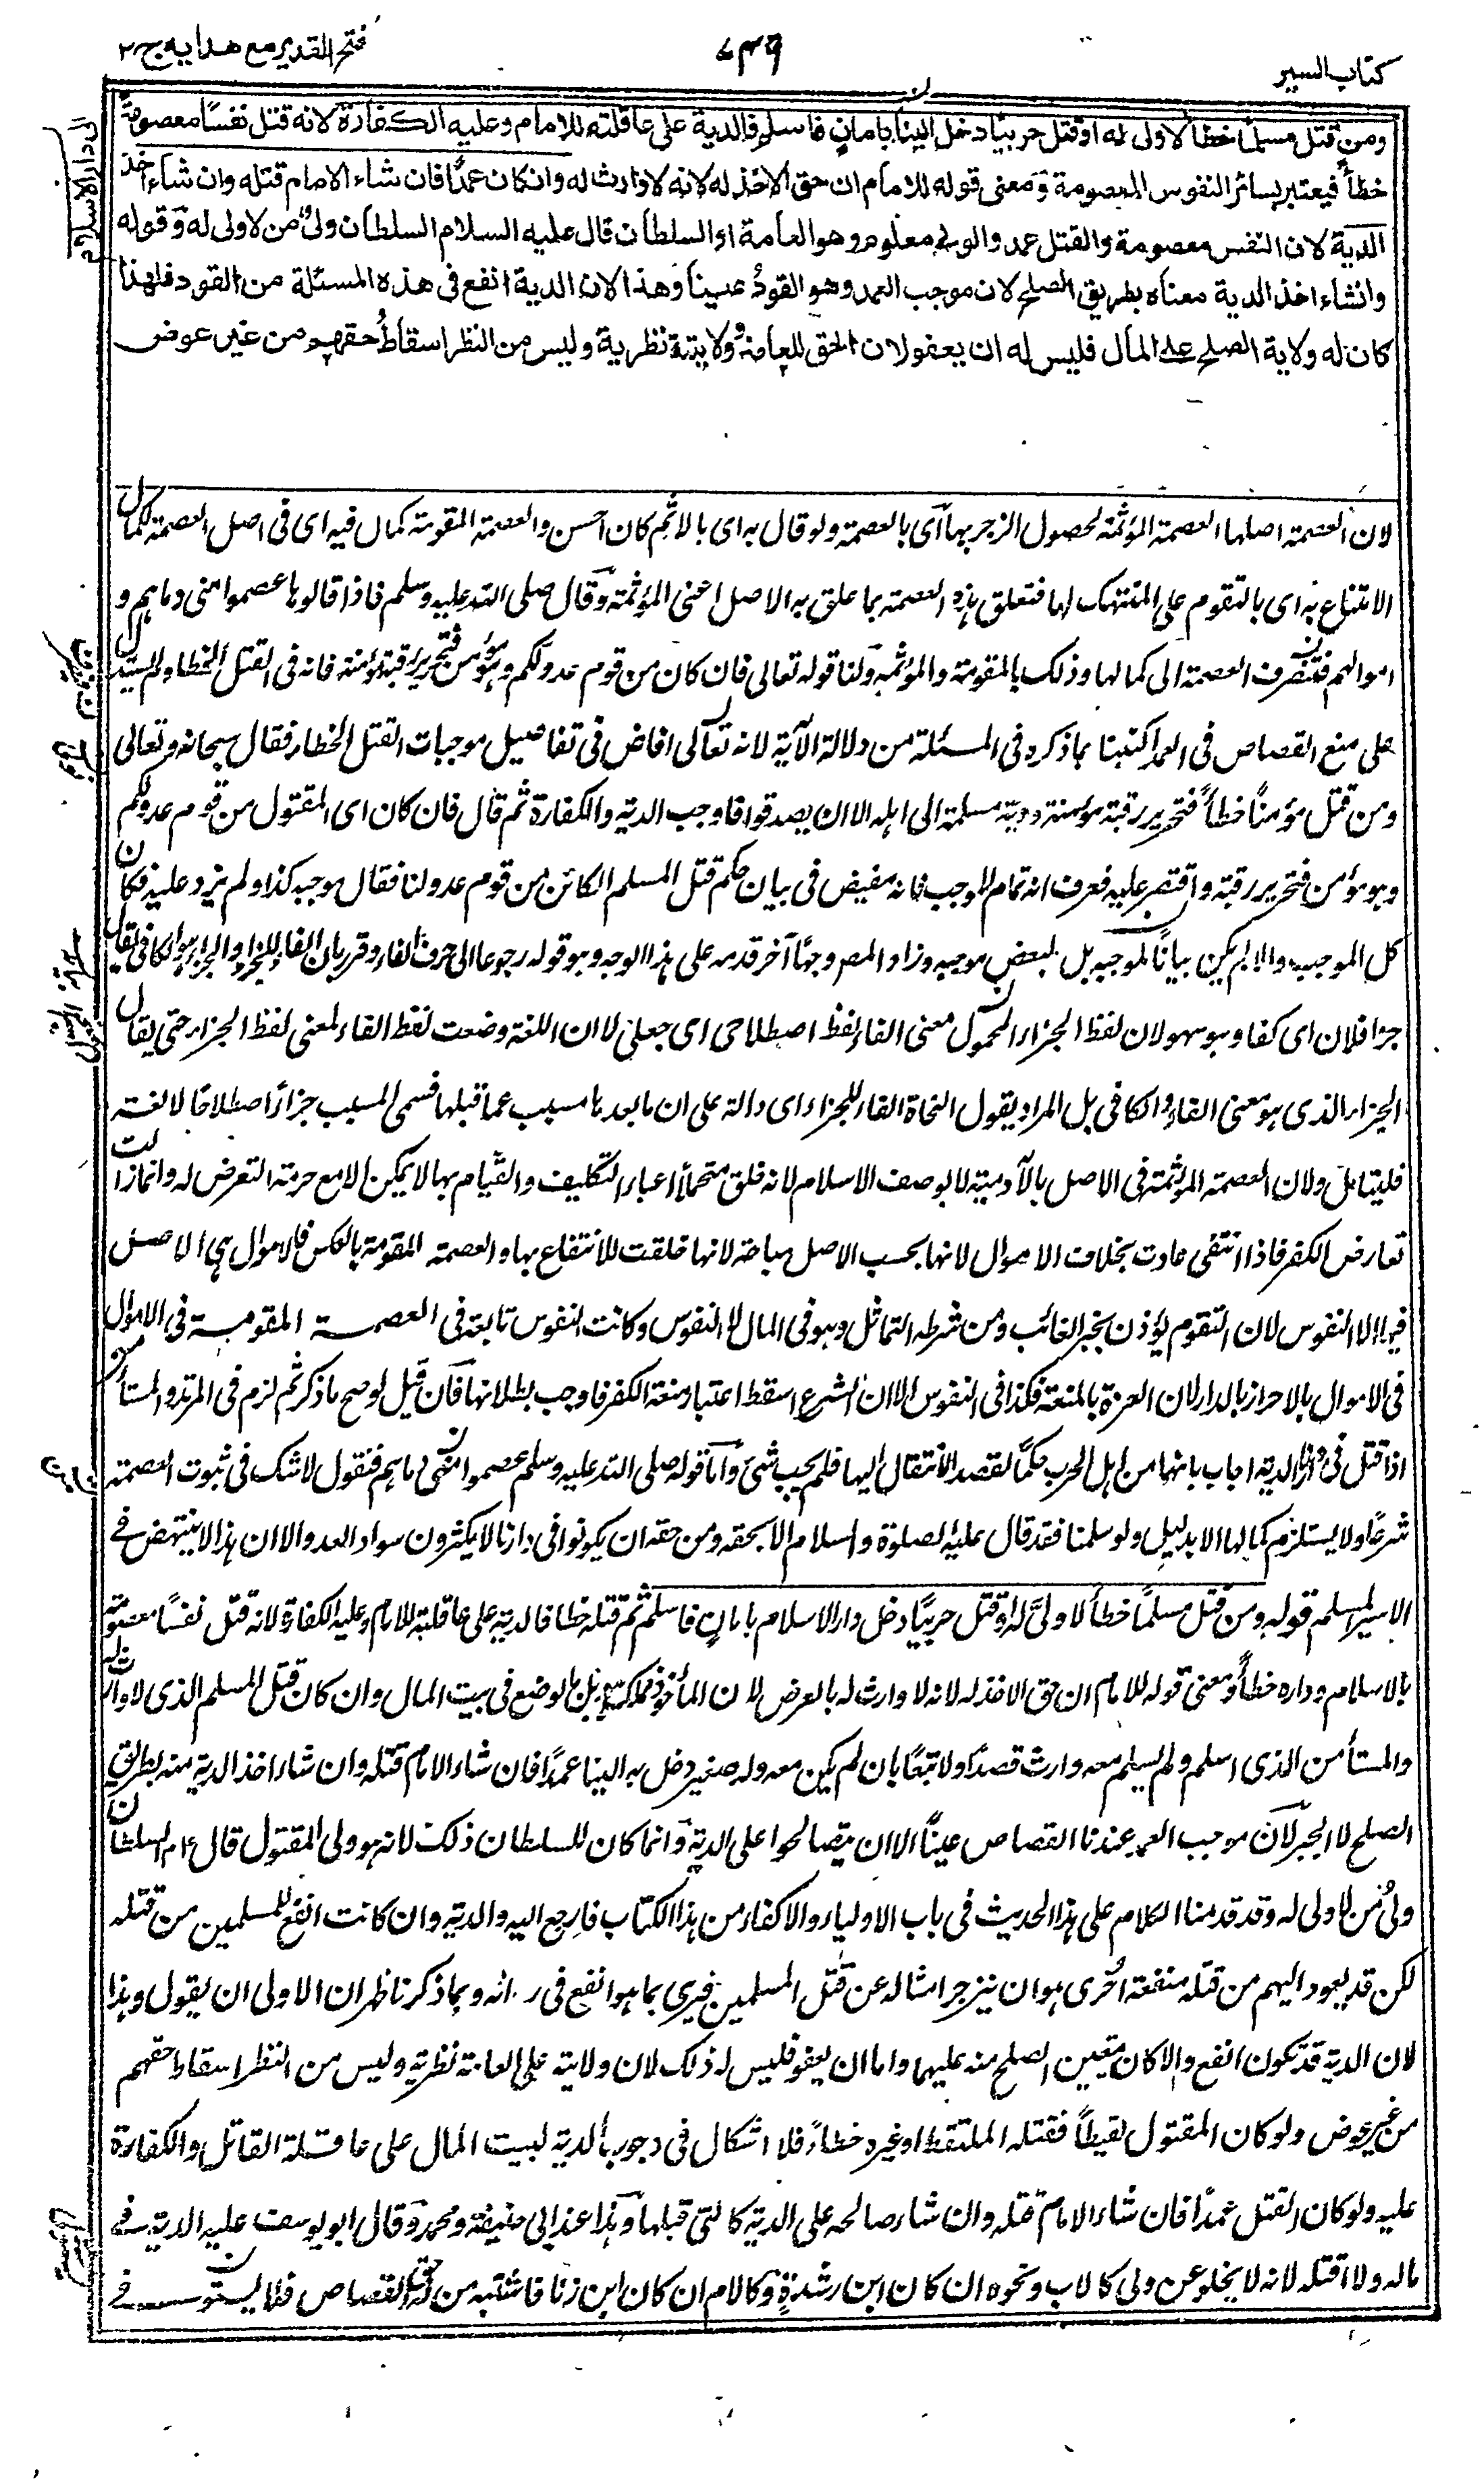 كتاب السير
٧٣٩
فتح القدير مع هدايه ج ٢
ومن قتل مسلما خطأ لا ولى له او قتل حربيا دخل الينا بامان فاسلم فالدية على عاقلته للامام وعليه الكفارة لانه قتل نفسًا معصومة
خطأً فيعتبر بسائر النفوس المعصومة ومعنى قوله للامام ان حق الاخذ له لانه لا وارث له وان كان عمدًا فان شاء الامام قتله وان شاء اخذ
الدية لان النفس معصومة والقتل عمد والولى معلوم وهو العامة او السلطان قال عليه السلام السلطان ولى من لا ولى له وقوله
وان شاء اخذ الدية معناه بطريق الصلح لان موجب العمد وهو القود عينا وهذا لان الدية انفع فى هذه المسئلة من القود فلهذا
كان له ولاية الصلح على المال فليس له ان يعفو لان الحق للعامة وولايته نظرية وليس من النظر اسقاط حقهم من غير عوض
لان العصمة اصلها العصمة المؤثمة لحصول الزجر بها أى بالعصمة ولو قال به اى بالاثم كان احسن والعصمة المقومة كمال فيه اى فى اصل العصمة لكمال
الامتناع به اى بالتقوم على المنتهك لها فتعلق هذه العصمة بما علق به الاصل اعنى المؤثمة وقال صلى الله عليه وسلم فاذا قالوها عصموا منى دماءهم و
اموالهم فتنصرف العصمة الى كمالها وذلك بالمقومة والمؤثمة ولنا قوله تعالى فان كان من قوم عدو لكم وهو مؤمن فتحرير رقبة مؤمنة فانه فى القتل الخطاء ولم يستدل
على منع القصاص فى العمد اكتفينا بما ذكره فى المسئلة من دلالة الآية لانه تعالى افاض فى تفاصيل موجبات القتل الخطاء فقال سبحانه وتعالى
ومن قتل مؤمنًا خطأً فتحرير رقبة مؤمنة ودية مسلمة الى اهله الا ان يصدقوا فاوجب الدية والكفارة ثم قال فان كان اى المقتول من قوم عدو لكم
وهو مؤمن فتحرير رقبة واقتصر عليه فعرف انه تمام الموجب فانه مفيض فى بيان حكم قتل المسلم الكائن من قوم عدو لنا فقال موجبه كذا ولم يزد عليه فكان
كل الموجب والا لم يكن بيانًا لموجبه بل لبعض موجبه وزاد المصر وجهًا آخر قدمه على هذا الوجه وهو قوله رجوعا الى حرف الفاء وقرر بان الفاء للجزاء والجزاء هو الكافى يقال
جزا فلان اى كفا وهو سهو لان لفظ الجزاء المجعول معنى الفاء لفظ اصطلاحى اى جعلى لا ان اللغة وضعت لفظ الفاء لمعنى لفظ الجزاء حتى يقال
الجزاء الذى هو معنى الفاء والكافى بل المراد يقول النحاة الفاء للجزاء اى دالة على ان ما بعدها مسبب عما قبلها فسمى المسبب جزاءً اصطلاحًا لا لغة
فليتامل ولان العصمة المؤثمة فى الاصل بالآدمية لا بوصف الاسلام لانه خلق متحملًا اعباء التكليف والقيام بها لا يمكن الا مع حرمة التعرض له وانما زالت
تعارض الكفر فاذا انتفى عادت بخلاف الاموال لانها بحسب الاصل مباحة لانها خلقت للانتفاع بها والعصمة المقومة بالعكس فالاموال هى الاصل
فيها لا النفوس لان التقوم يؤذن بجبر الغائب ومن شرطه التماثل وهو فى المال لا النفوس وكانت النفوس تابعة فى العصمة المقومة فى الاموال
فى الاموال بالاحراز بالدار لان العزة بالمنعة فكذا فى النفوس الا ان الشرع اسقط اعتبار منعة الكفر فاوجب بطلانها فان قيل لو صح ما ذكر ثم لزم فى المرتد والمستأمن
اذا قتل فى الدية اجاب بانهما من اهل الحرب حكمًا لقصد الانتقال اليها فلم يجب شئ وأما قوله صلى الله عليه وسلم عصموا منى دماءهم فنقول لا شك فى ثبوت العصمة
شرعًا ولا يستلزم كمالها الا بدليل ولو سلمنا فقد قال عليه الصلوة والسلام الا بحقه ومن حقه ان يكونوا فى دارنا لا يكثرون سواد العدو الا ان هذا لا ينتهض فى
الاسير المسلم قوله ومن قتل مسلمًا خطأ لا ولىّ له او قتل حربيًا دخل دار الاسلام بامان فاسلم ثم قتله خطأ فالدية على عاقلته للامام وعليه الكفارة لانه قتل نفسًا معصومة
بالاسلام وداره خطأً ومعنى قوله للامام ان حق الاخذ له لانه لا وارث له بالعرض لان المأخوذ يملكه بل ليوضع فى بيت المال وان كان قتل المسلم الذى لا وارث له
والمستأمن الذى اسلم ولم يسلم معه وارث قصدًا ولا تبعًا بان لم يكن معه ولد صغير دخل به الينا عمدًا فان شاء الامام قتله وان شاء اخذ الدية منه بطريق
الصلح لا الجبر لان موجب العمد عندنا القصاص عينًا الا ان يتصالحوا على الدية وانما كان للسلطان ذلك لانه هو ولى المقتول قال عم السلطان
ولى من لا ولى له وقد قدمنا الكلام على هذا الحديث فى باب الاولياء والاكفاء من هذا الكتاب فارجع اليه والدية وان كانت انفع للمسلمين من قتله
لكن قد يعود اليهم من قتله منفعة اخرى هو ان ينزجر امثاله عن قتل المسلمين فيرى بما هو انفع فى رائه وبما ذكرنا ظهر ان الاولى ان يقول وهذا
لان الدية قد تكون انفع والا كان يتعين الصلح منه عليهما واما ان يعفو فليس له ذلك لان ولايته على العامة نظرية وليس من النظر اسقاط حقهم
من غير عوض ولو كان المقتول لقيطًا فقتله الملتقط او غيره خطأً فلا اشكال فى وجوب الدية لبيت المال على عاقلة القاتل والكفارة
عليه ولو كان القتل عمدًا فان شاء الامام قتله وان شاء صالحه على الدية كالتى قبلها وهذا عند ابى حنيفة ومحمد وقال ابو يوسف عليه الدية فى
ماله ولا اقتله لانه لا يخلو عن ولى كالاب ونحوه ان كان ابن رشدة وكالام ان كان ابن زنا فاشتبه من له حق القصاص فلا يستوفى